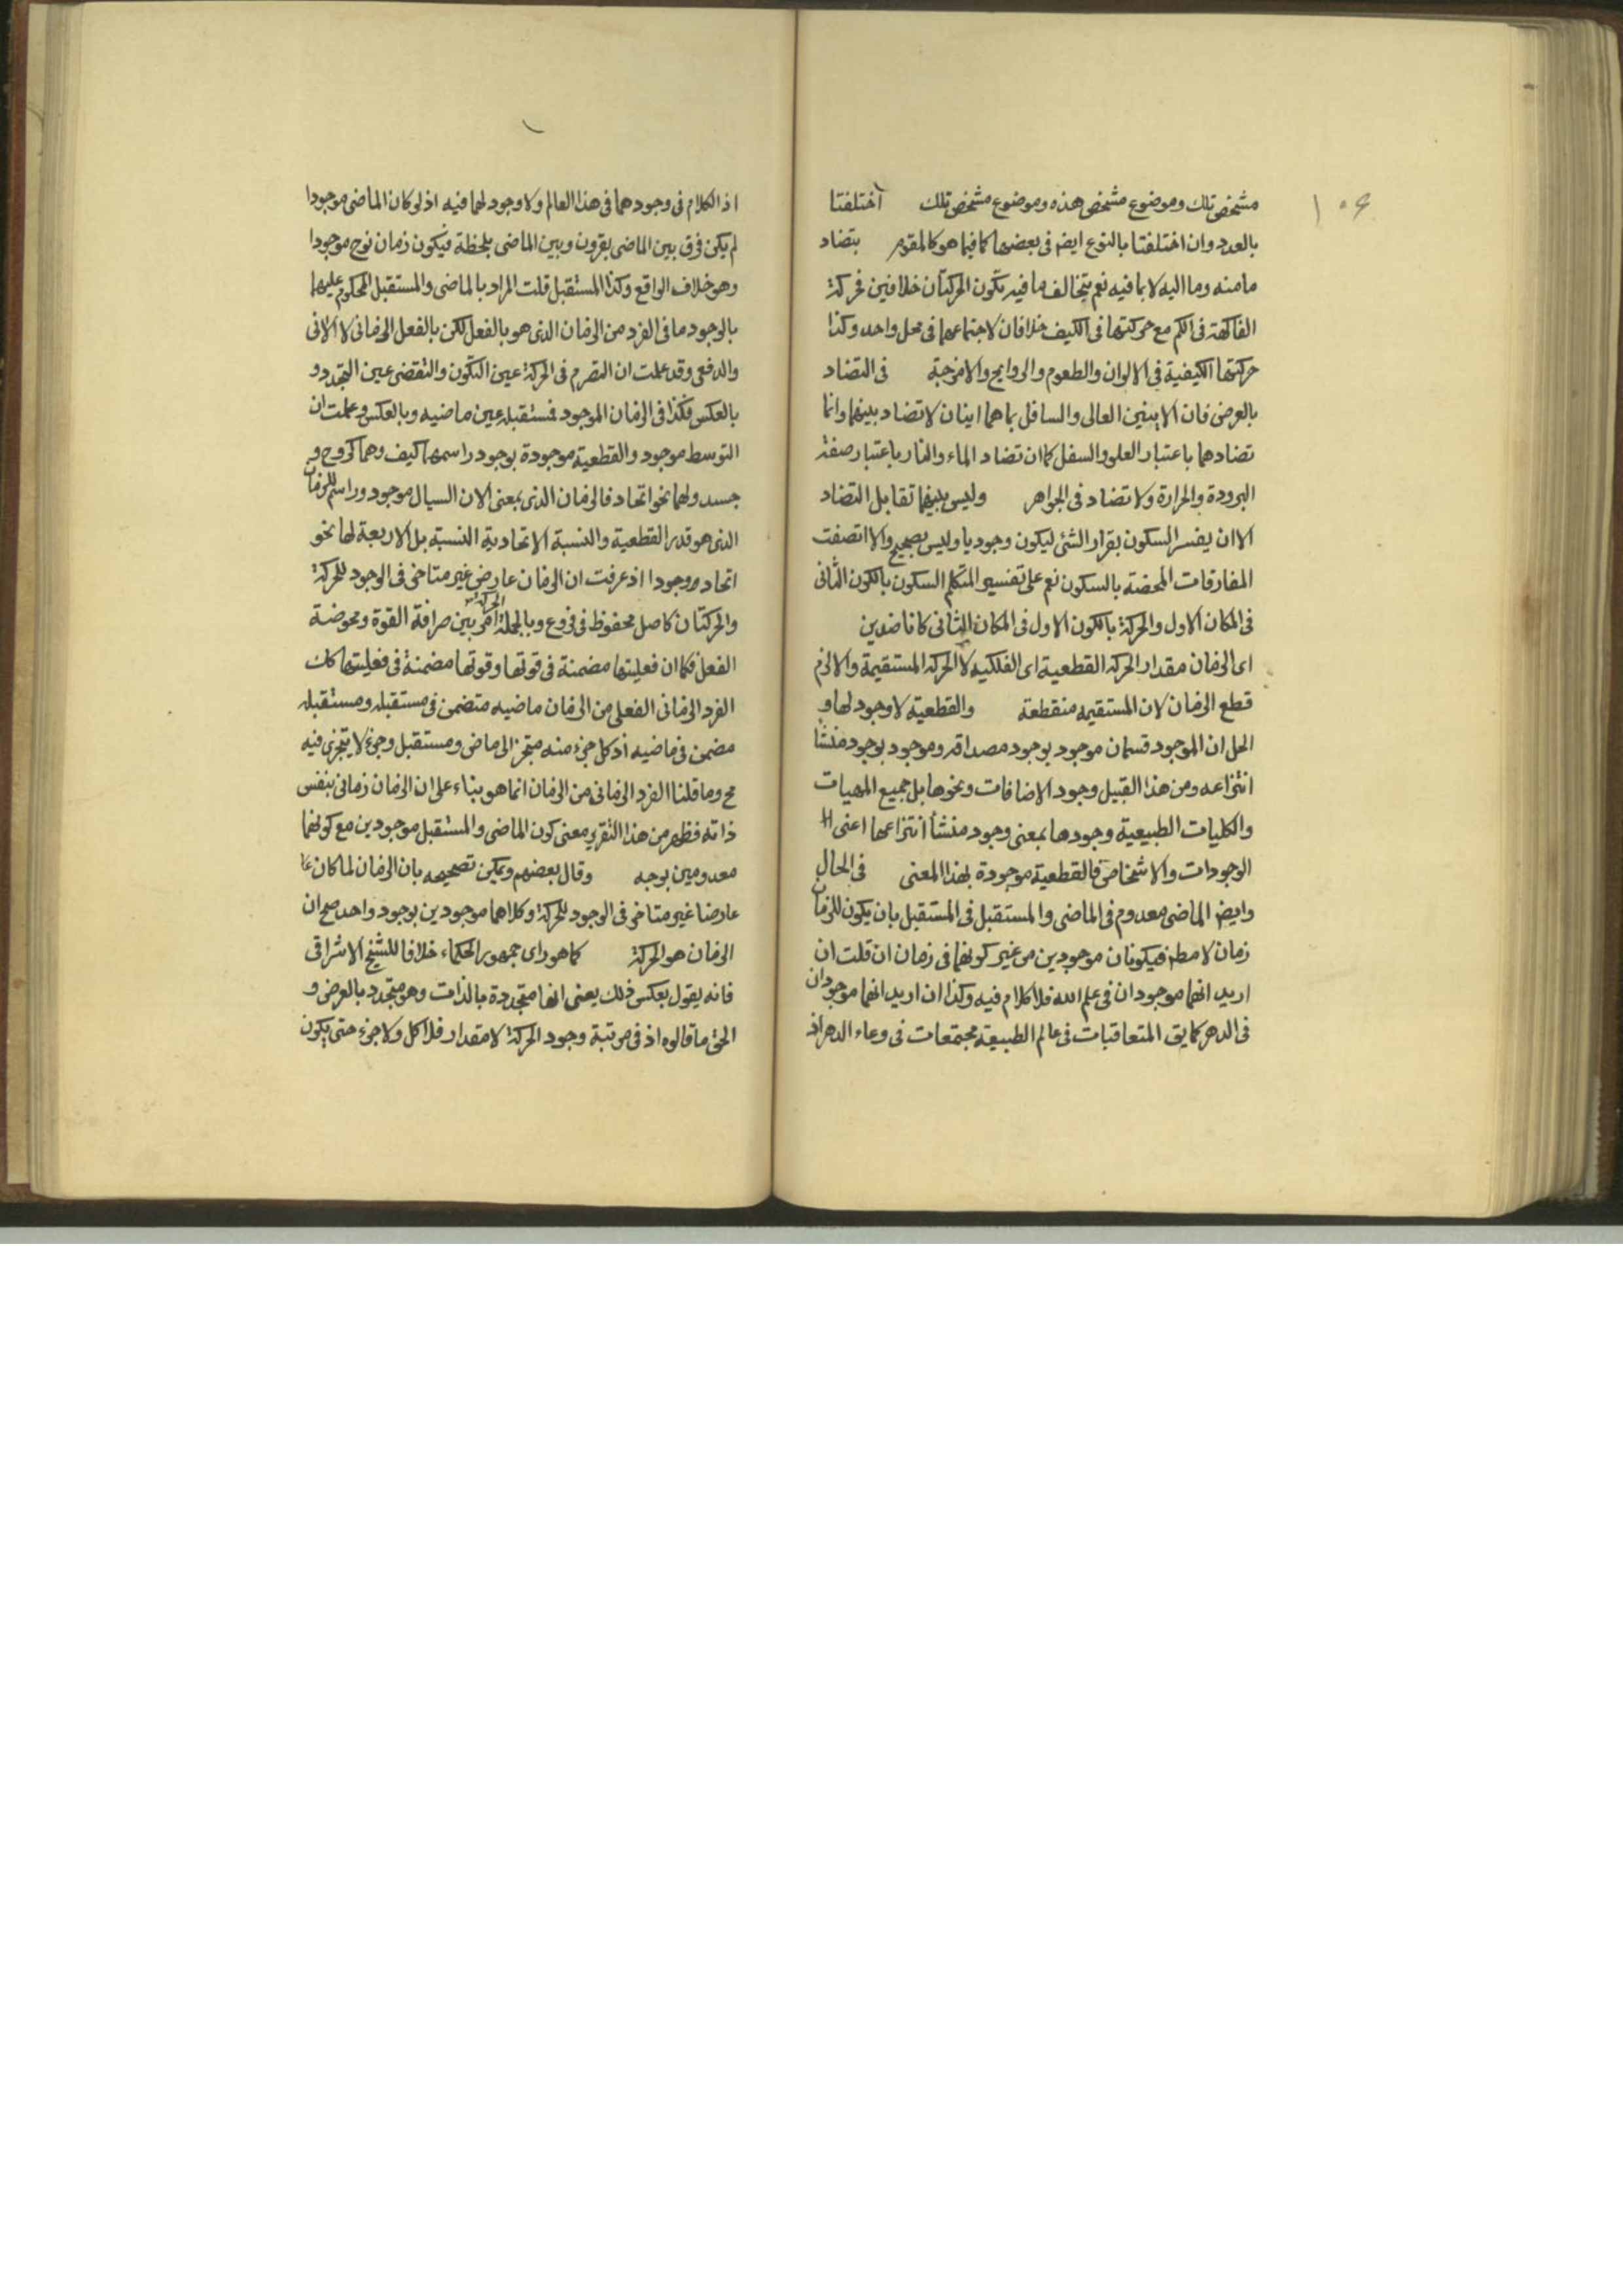 ١٠٤
مشخص تلك وموضوع مشخص هذه وموضوع مشخص تلك اختلفتا
بالعدد وان اختلفتا بالنوع ايضا فى بعضها كما فيما هو كالمقوم بتضاد
مامنه وما اليه لا بما فيه نعم بتخالف ما فيه يكون الحركتان خلافين فحركة
الفاكهة فى الكم مع حركتها فى الكيف خلافان لاجتماعهما فى محل واحد وكذا
حركتها الكيفية فى الالوان والطعوم والروايح والامزجة فى التضاد
بالعرض فان الاينين العالى والسافل بما هما اينان لا تضاد بينهما وانما
تضادهما باعتبار العلو والسفل كما ان تضاد الماء والنار باعتبار صفة
البرودة والحرارة ولا تضاد فى الجواهر وليس بينهما تقابل التضاد
الا ان يفسر السكون بقرار الشئ ليكون وجوديا وليس بصحيح والا اتصفت
المفارقات المحضة بالسكون نعم على تفسير المتكلم السكون بالكون الثانى
فى المكان الاول والحركة بالكون الاول فى المكان الثانى كانا ضدين
اى الزمان مقدار الحركة القطعية اى الفلكية لا الحركة المستقيمة والا لزم
قطع الزمان لان المستقيمة منقطعة والقطعية لا وجود لها و
الحل ان الموجود قسمان موجود بوجود مصداقه وموجود بوجود منشا
انتزاعه ومن هذا القبيل وجود الاضافات ونحوها بل جميع المهيات
والكليات الطبيعية وجودها بمعنى وجود منشأ انتزاعها اعنى
الوجودات والاشخاص فالقطعية موجودة بهذا المعنى فى الحال
وايضا الماضى معدوم فى الماضى والمستقبل فى المستقبل بان يكون للزمان
زمان لا مطلقا فيكونان موجودين من غير كونهما فى زمان ان قلت ان
اريد انهما موجودان فى علم الله فلا كلام فيه وكذا ان اريد انهما موجودان
فى الدهر كما يق المتعاقبات فى عالم الطبيعة مجتمعات فى وعاء الدهر اذ
اذ الكلام فى وجودهما فى هذا العالم ولا وجود لهما فيه اذ لو كان الماضى موجودا
لم يكن فرق بين الماضى بقرون وبين الماضى بلحظة فيكون زمان نوح موجودا
وهو خلاف الواقع وكذا المستقبل قلت المراد بالماضى والمستقبل المحكوم عليهما
بالوجود ما فى الفرد من الزمان الذى هو بالفعل لكن بالفعل الزمانى لا الآنى
والدفعى وقد علمت ان التصرم فى الحركة عين التكون والتقضى عين التجدد و
بالعكس فكذا فى الزمان الموجود فمستقبله عين ماضيه وبالعكس وعلمت ان
التوسط موجود والقطعية موجودة بوجود راسمها كيف وهما كروح و
جسد ولهما نحو اتحاد فالزمان الذى بمعنى الان السيال موجود وراسم للزمان
الذى هو قدر القطعية والنسبة الاتحادية النسبة بل الاربعة لها نحو
اتحاد وجودا اذ عرفت ان الزمان عارض غير متاخر فى الوجود للحركة
والحركتان كاصل محفوظ فى فروع وبالجملة الحركة امر بين صرافة القوة ومحوضة
الفعل فكما ان فعليتها مضمنة فى قوتها وقوتها مضمنة فى فعليتها كذلك
الفرد الزمانى الفعلى من الزمان ماضيه متضمن فى مستقبله ومستقبله
مضمن فى ماضيه اذ كل جزء منه متجز الى ماض ومستقبل وجزء لا يتجزى فيه
مح وما قلنا الفرد الزمانى من الزمان انما هو بناء على ان الزمان زمانى بنفس
ذاته فظهر من هذا التقرير معنى كون الماضى والمستقبل موجودين مع كونهما
معدومين بوجه وقال بعضهم ويمكن تصحيحه بان الزمان لما كان
عارضا غير متاخر فى الوجود للحركة وكلاهما موجودين بوجود واحد صح ان
الزمان هو الحركة كما هو راى جمهور الحكماء خلافا للشيخ الاشراقى
فانه يقول بعكس ذلك يعنى انها متجددة بالذات وهو متجدد بالعرض و
الحق ما قالوه اذ فى مرتبة وجود الحركة لا مقدار فلا كل ولا جزء حتى يكون